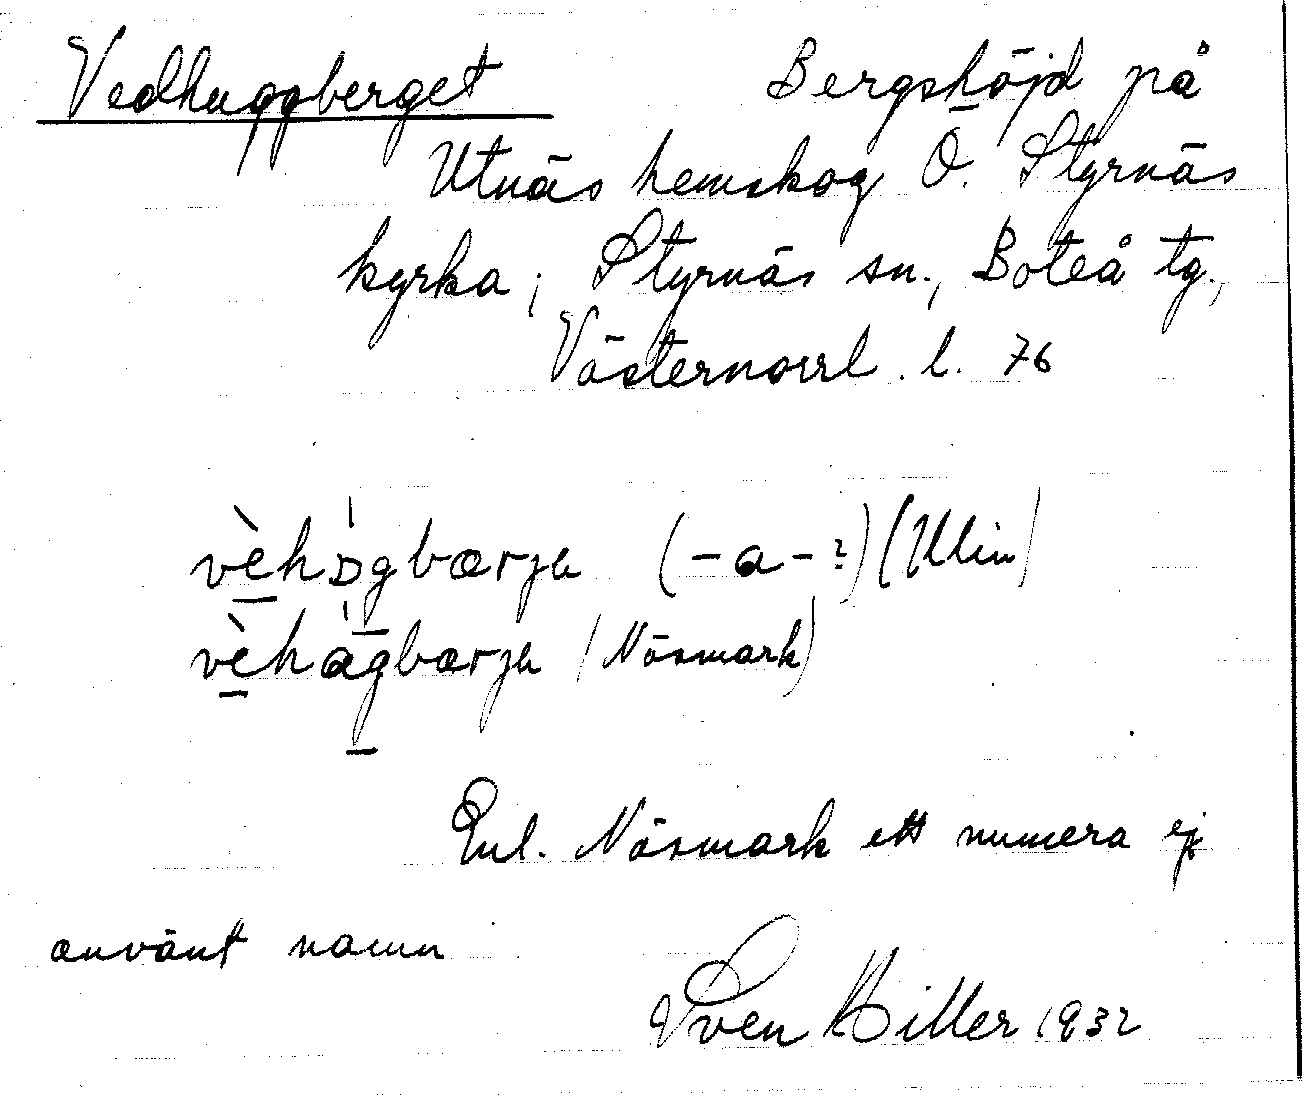 Vedhuggberget Bergshöjd på
Utnäs hemskog Ö. Styrnäs
kyrka; Styrnäs sn., Boteå tg.,
Västernorrl. l. 76
vèhɒ́gbærja (-a-?) (Ulin)
vèhágbærja (Näsmark)
Enl. Näsmark ett numera ej
använt namn
Sven Hiller 1932